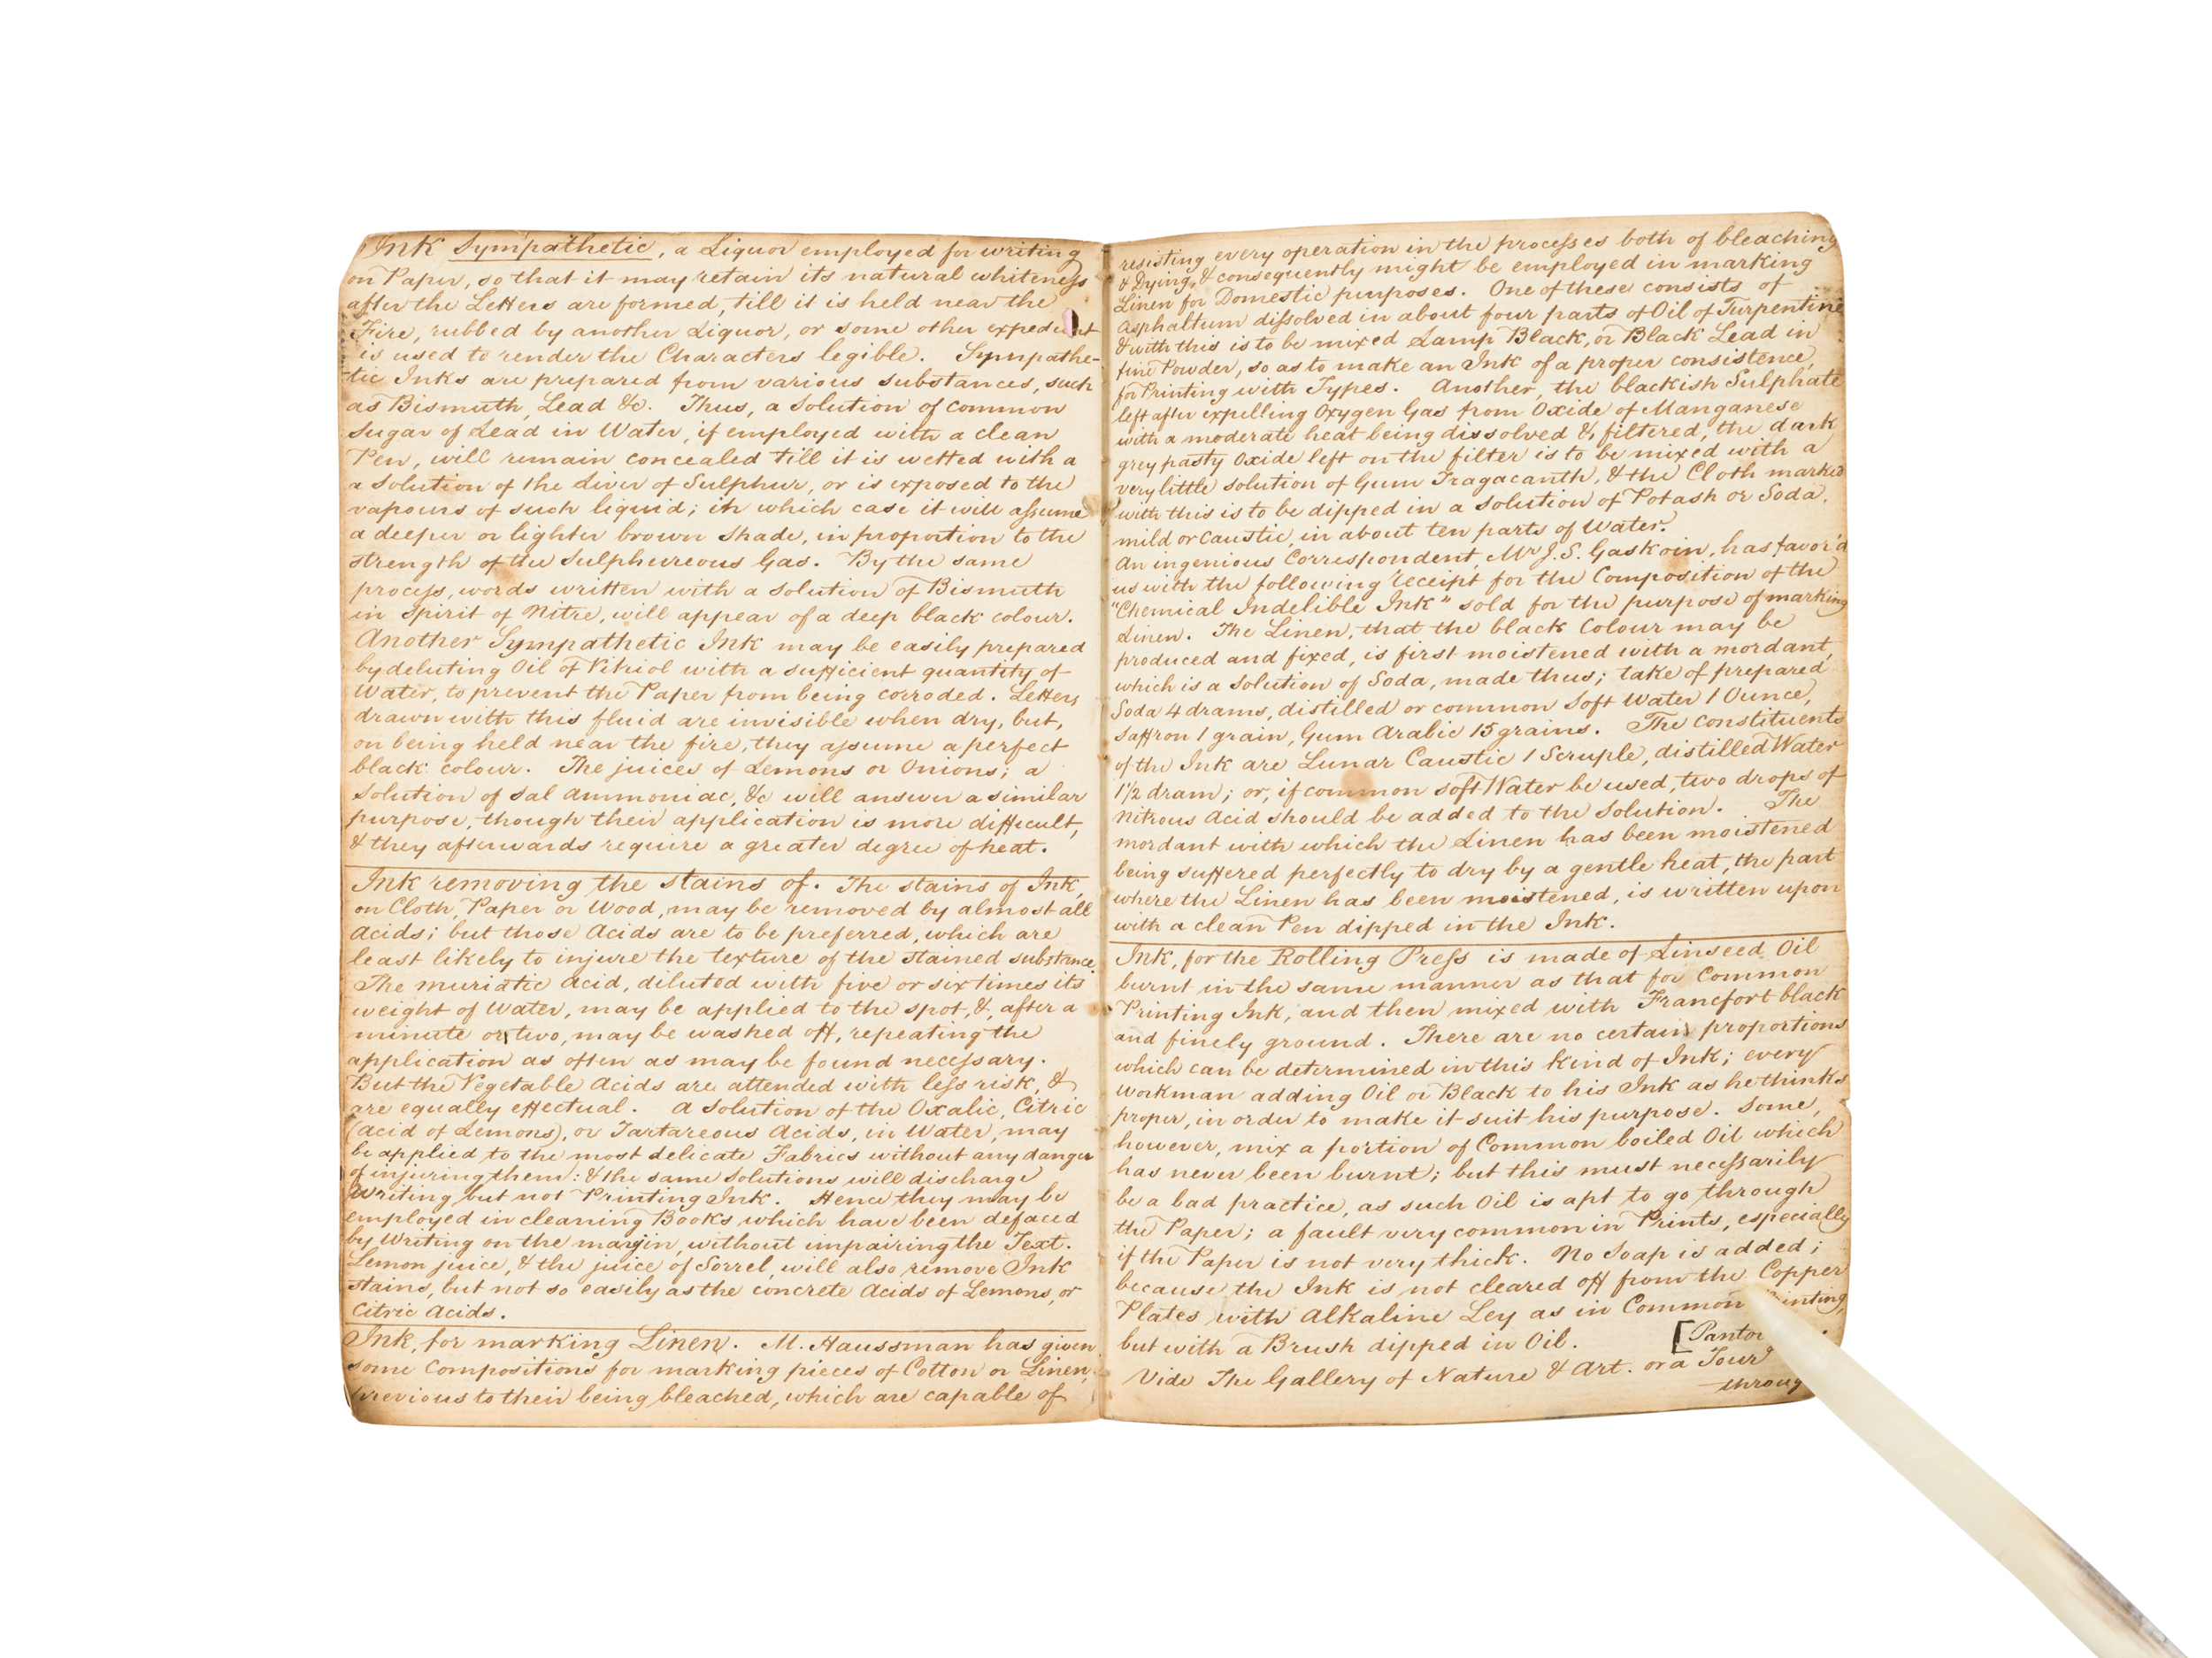 Ink Sympathetic, a Liquor employed for writing
on Paper, so that it may retain its natural whiteness
after the Letters are formed, till it is held near the
Fire, rubbed by another Liquor, or some other expedient
is used to render the Characters legible. Sympathe-
tic Inks are prepared from various substances, such
as Bismuth, Lead &c. Thus, a Solution of common
Sugar of Lead in Water, if employed with a clean
Pen, will remain concealed till it is wetted with a
a solution of the Liver of Sulphur, or is exposed to the
vapours of such liquid; in which case it will assume
a deeper or lighter brown shade, in proportion to the
strength of the Sulphureous Gas. By the same
process, words written with a solution of Bismuth
in Spirit of Nitre, will appear of a deep black colour.
Another Sympathetic Ink may be easily prepared
by deluting Oil of Vitriol with a sufficient quantity of
Water, to prevent the Paper from being corroded. Letters
drawn with this fluid are invisible when dry, but,
on being held near the fire, they assume a perfect
black colour. The juices of Lemons or Onions; a
solution of Sal Ammoniac, &c will answer a similar
purpose, though their application is more difficult,
& they afterwards require a greater degree of heat.
Ink removing the stains of. The stains of Ink,
on Cloth, Paper or Wood, may be removed by almost all
Acids; but those Acids are to be preferred, which are
least likely to injure the texture of the stained substance.
The muriatic Acid, diluted with five or six times its
weight of Water, may be applied to the spot, &, after a
minute or two, may be washed off, repeating the
application as often as may be found necessary.
But the Vegetable Acids are attended with less risk, &
are equally effectual. A Solution of the Oxalic, Citric
(Acid of Lemons), or Tartareous Acids, in Water, may
be applied to the most delicate Fabrics without any danger
of injuring them: & the same Solutions will discharge
Writing but not Printing Ink. Hence they may be
employed in cleaning Books which have been defaced
by Writing on the margin, without impairing the Text.
Lemon juice, & the juice of Sorrel, will also remove Ink
stains, but not so easily as the concrete Acids of Lemons, or
Citric Acids.
Ink, for marking Linen. M. Haussman has given
some Compositions for marking pieces of Cotton or Linen,
previous to their being bleached, which are capable of
resisting every operation in the processes both of bleaching
& Dying, & consequently might be employed in marking
Linen for Domestic purposes. One of these consists of
Asphaltum dissolved in about four parts of Oil of Turpentine
& with this is to be mixed Lamp Black, or Black Lead in
fine Powder, so as to make an Ink of a proper consistence,
for Printing with Types. Another, the blackish Sulphate
left after expelling Oxygen Gas from Oxide of Manganese
with a moderate heat being dissolved & filtered, the dark
grey pasty Oxide left on the filter is to be mixed with a
very little solution of Gum Tragacanth, & the Cloth marked
with this is to be dipped in a solution of Potash or Soda,
mild or Caustic, in about ten parts of Water.
An ingenious Correspondent, Mr J. S. Gaskoin, has favor'd
us with the following receipt for the Composition of the
"Chemical Indelible Ink" sold for the purpose of marking
Linen. The Linen, that the black Colour may be
produced and fixed, is first moistened with a mordant,
which is a Solution of Soda, made thus; take of prepared
Soda 4 drams, distilled or common Soft Water 1 Ounce,
Saffron 1 grain, Gum Arabic 15 grains. The Constituents
of the Ink are Lunar Caustic 1 Scruple, distilled Water
1½ dram; or, if common soft Water be used, two drops of
Nitrous Acid should be added to the Solution. The
mordant with which the Linen has been moistened
being suffered perfectly to dry by a gentle heat, the part
where the Linen has been moistened, is written upon
with a clean Pen dipped in the Ink.
Ink, for the Rolling Press is made of Linseed Oil
burnt in the same manner as that for Common
Printing Ink, and then mixed with Francfort black
and finely ground. There are no certain proportions
which can be determined in this kind of Ink; every
workman adding Oil or Black to his Ink as he thinks
proper, in order to make it suit his purpose. Some,
however, mix a portion of Common boiled Oil which
has never been burnt; but this must necessarily
be a bad practice, as such Oil is apt to go through
the Paper; a fault very common in Prints, especially
if the Paper is not very thick. No Soap is added;
because the Ink is not cleared off from the Copper
Plates with Alkaline Ley as in Common Printing,
but with a Brush dipped in Oil. [Panto
Vide The Gallery of Nature & Art. or a Tour
throug